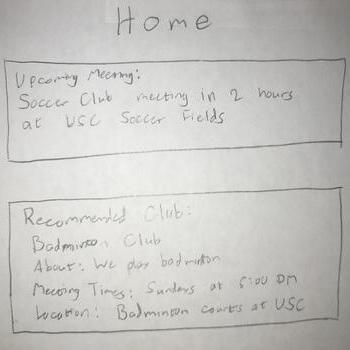 Home
Upcoming Meeting:
Soccer Club meeting in 2 hours
at USC Soccer Fields
Recommended Club:
Badminton Club
About: We play badminton
Meeting Times: Sundays at 5:00 PM
Location: Badminton courts at USC